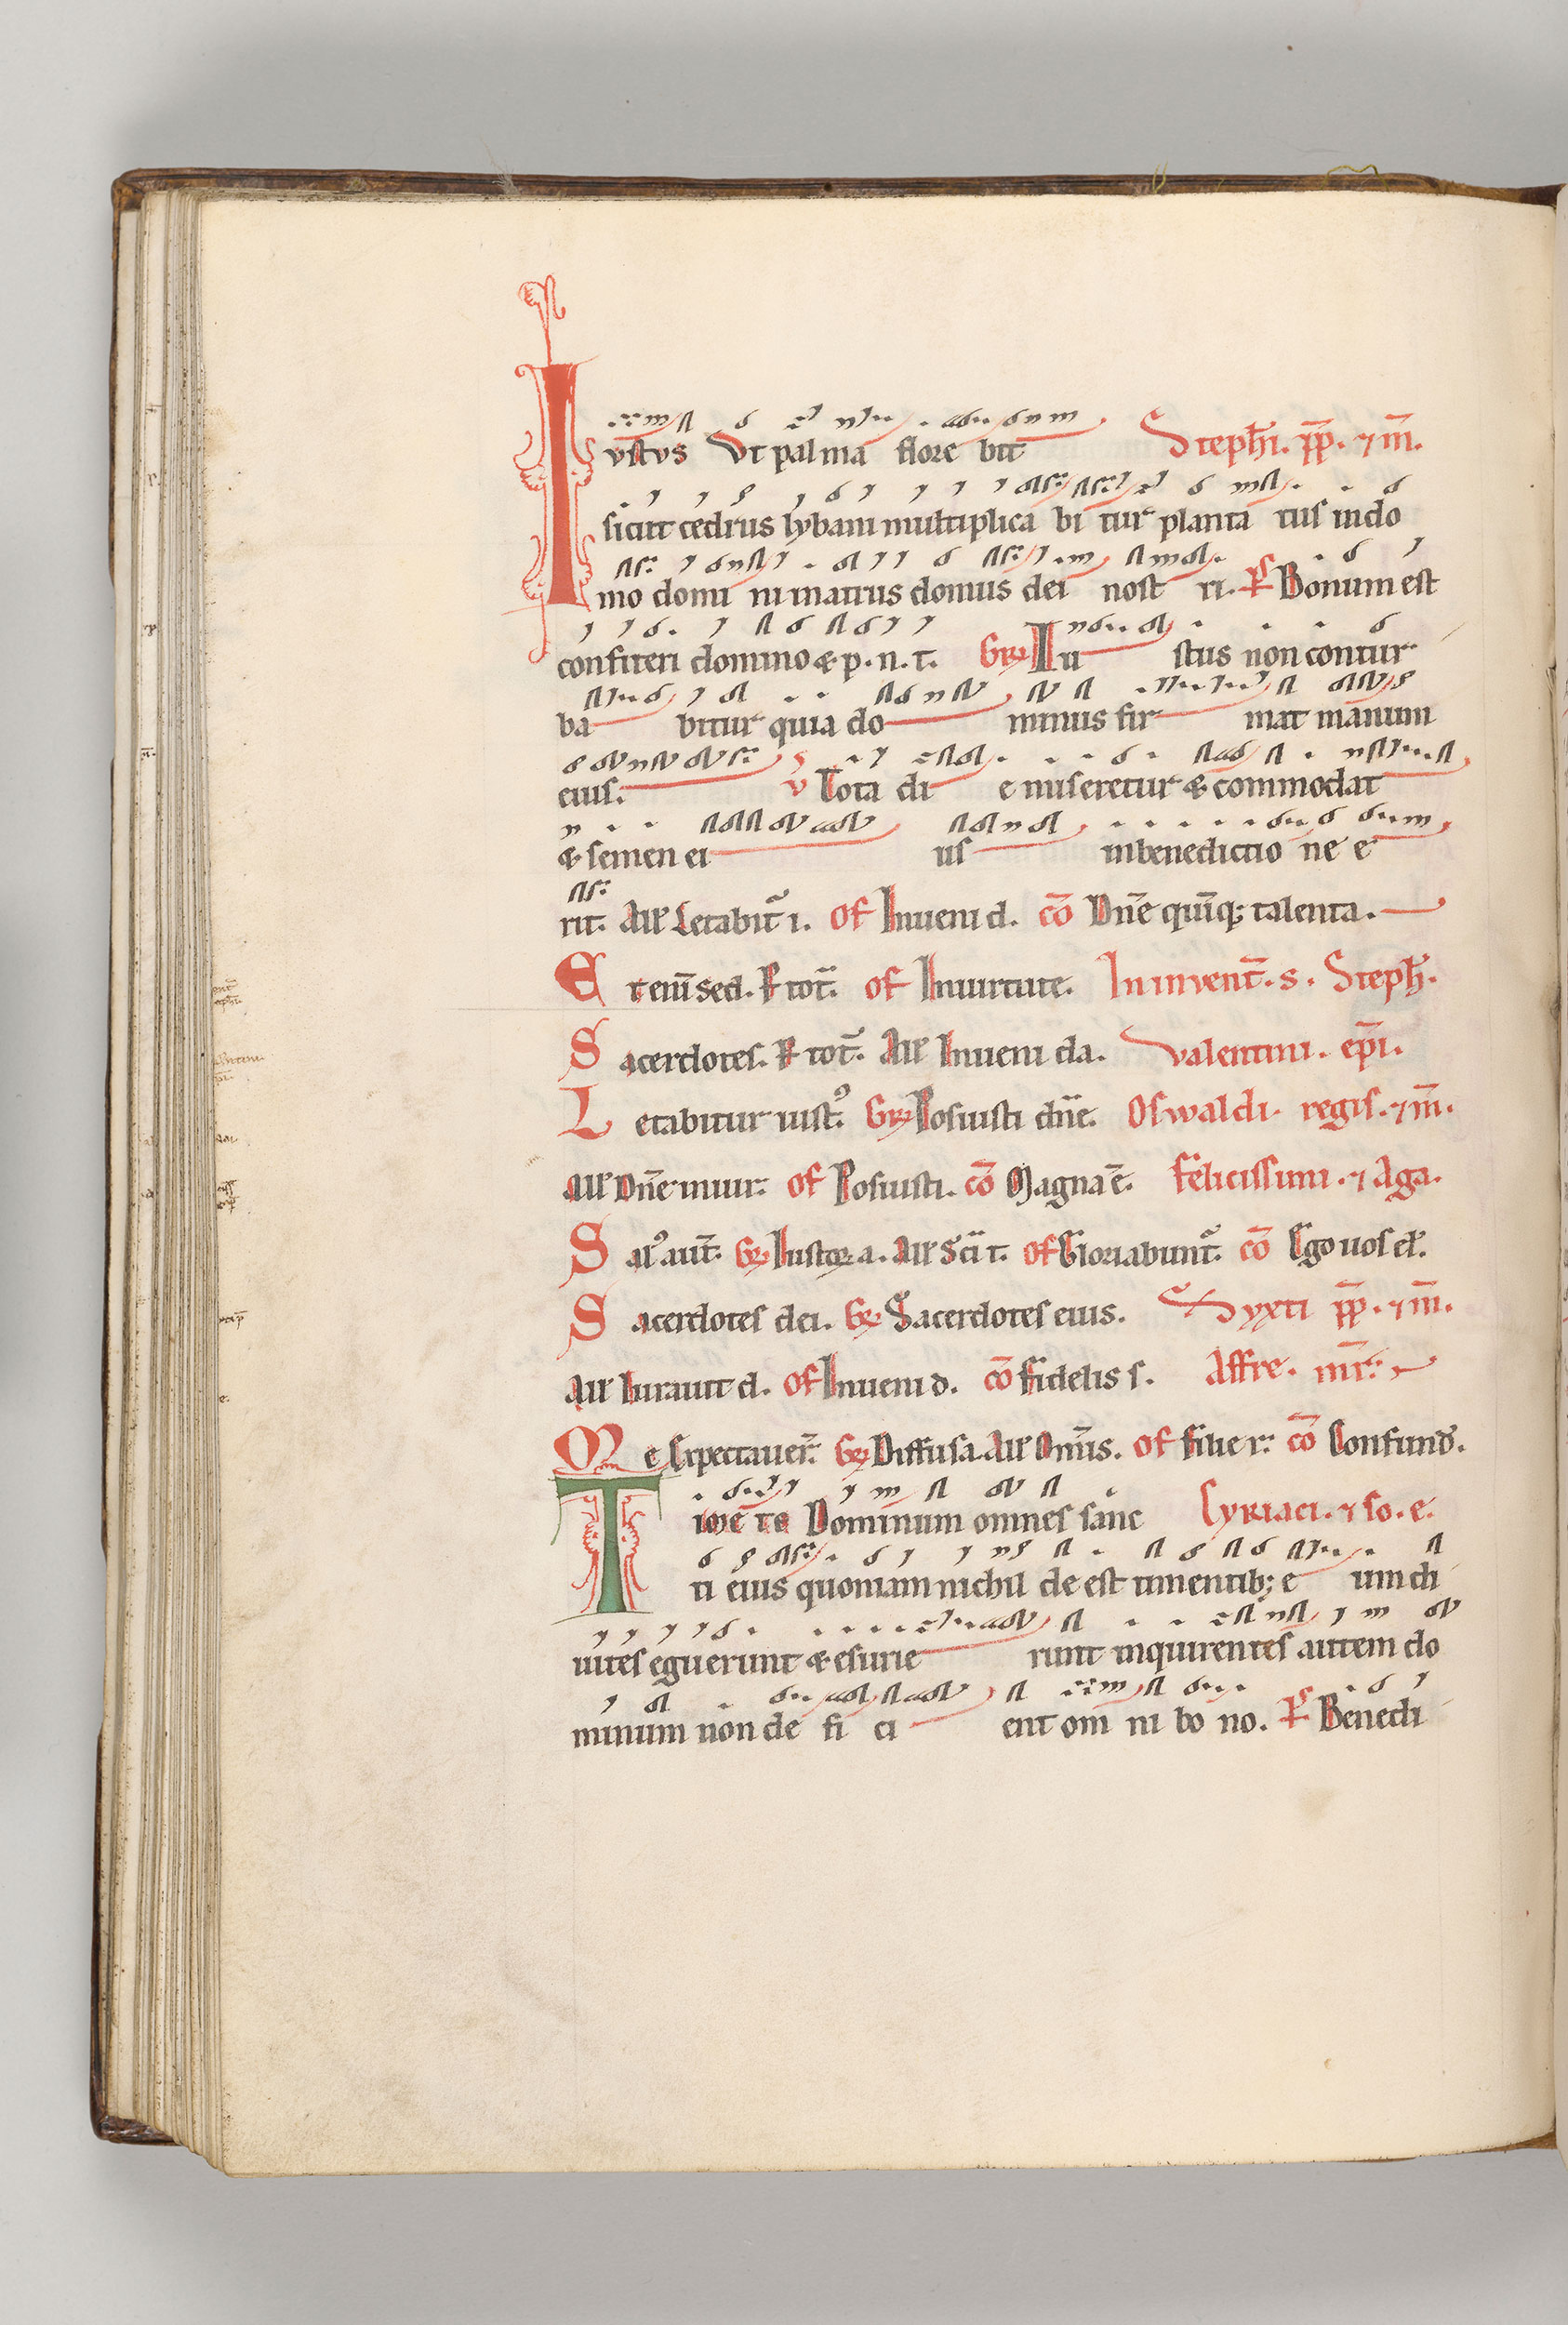 Iustus Vt palma flore bit Steph̄i. p̄p. ⁊ m̄.
sicut cedrus lybani multiplica bi tur planta tus in do
mo domi ni in atrius domus dei nost ri. Ps Bonum est
confiteri domino & p. n. t. Gr Iu stus non contur
ba bitur quia do minus fir mat manum
eius. v Tota di e miseretur & commodat
& semen ei us in benedictio ne e
rit. All Letabit᷑ i. Of Inueni d. cō Dn̄e quīq; talenta.
Et eni᷒ sed. Ps tot᷑. of Inuirtute. In invent̄. s. Steph̄.
Sacerdotes. Ps tot᷑. All Inueni da. Valentini. ep̄i.
Letabitur iust᷒. Gr Posuisti dn̄e. Oswaldi. regis. ⁊ m̄.
All Dn̄e inuir᷑. of Posuisti. cō Magna ē. felicissimi. ⁊ Aga.
Sal᷒ aut̄. Gr Iustoꝝ a. All Sc̄i t. of Gloriabunt᷑. cō Ego uos el̄.
Sacerdotes dei. Gr Sacerdotes eius. Syxti p̄p. ⁊ m̄.
All Iurauit d. Of Inueni d. cō fidelis s. Affre. mr̄.
Me Expectauer̄. Gr Diffusa. All Om̄is. of filie r. cō Confund᷒.
Timēte Dominum omnes sanc Cyriaci. ⁊ so. e.
ti eius quoniam nichil de est timentib; e um di
uites eguerunt & esurie runt inquirentes autem do
minum non de fi ci ent om ni bo no. Ps Benedi